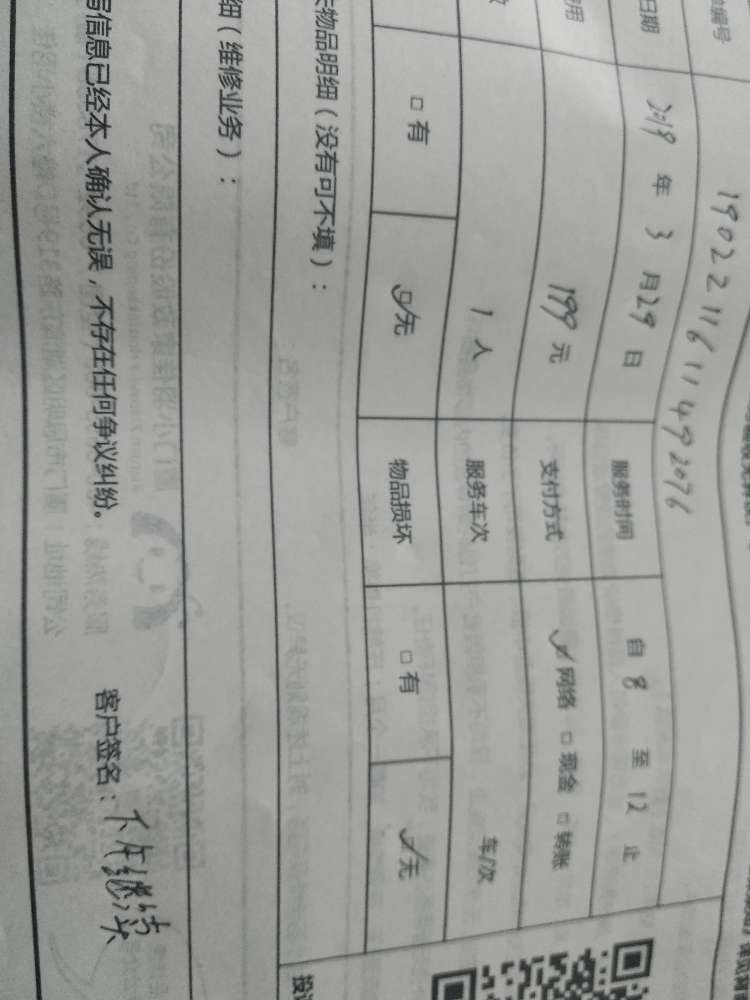 单编号 190221161149 2076
日期 2019 年 3 月 29 日 服务时间 自 8 至 12 止
用 199 元 支付方式 ☑网络 □现金 □转账
数 1 人 服务车次 车/次
□有 ☑无 物品损坏 □有 ☑无
失物品明细（没有可不填）：
细（维修业务）：
写信息已经本人确认无误，不存在任何争议纠纷。 客户签名：下午继续
投